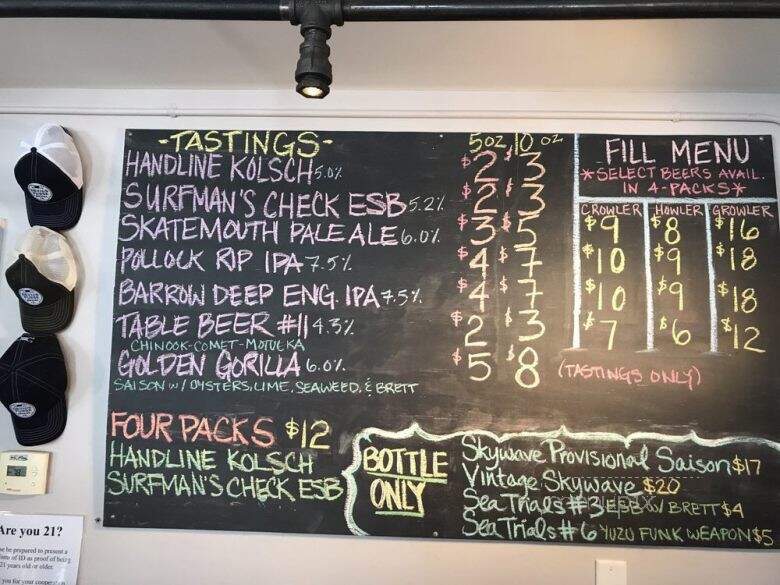 -TASTINGS- 5oz 10 oz
HANDLINE KOLSCH 5.0% $2 $3
SURFMAN'S CHECK ESB 5.2% $2 $3
SKATEMOUTH PALE ALE 6.0% $3 $5
POLLOCK RIP IPA 7.5% $4 $7
BARROW DEEP ENG. IPA 7.5% $4 $7
TABLE BEER #11 4.3% $2 $3
CHINOOK-COMET-MOTUEKA
GOLDEN GORILLA 6.0% $5 $8 (TASTINGS ONLY)
SAISON W/ OYSTERS, LIME, SEAWEED, & BRETT
FILL MENU
*SELECT BEERS AVAIL.
IN 4-PACKS*
CROWLER HOWLER GROWLER
$9 $8 $16
$10 $9 $18
$10 $9 $18
$7 $6 $12
FOUR PACKS $12
HANDLINE KOLSCH
SURFMAN'S CHECK ESB
BOTTLE
ONLY
Skywave Provisional Saison $17
Vintage Skywave $20
Sea Trials #3 ESB W/ BRETT $4
Sea Trials #6 YUZU FUNK WEAPON $5
Are you 21?
be prepared to present a
form of ID as proof of being
21 years old or older.
you for your cooperation